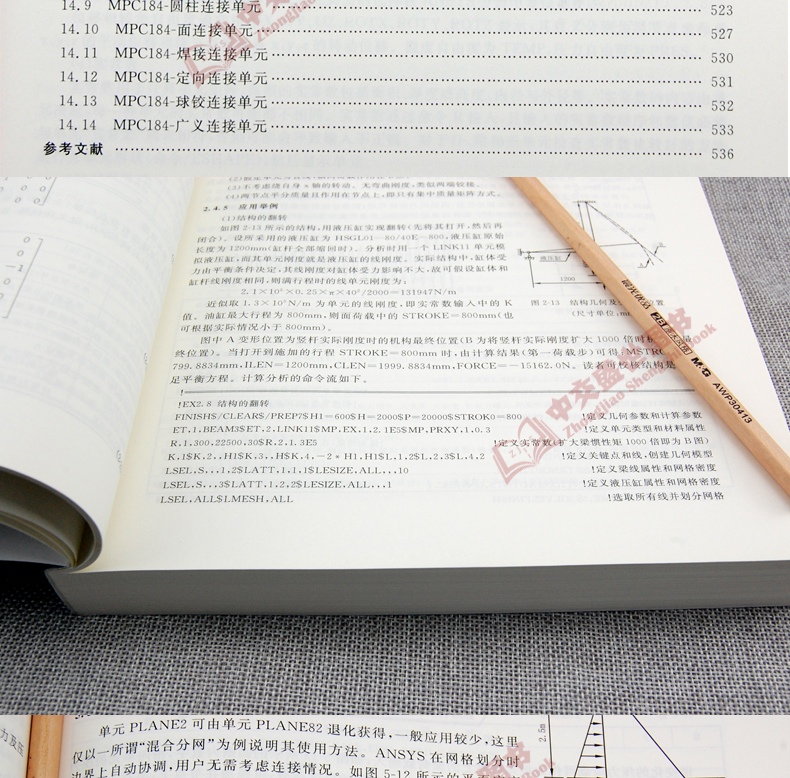 14.9 MPC184-圆柱连接单元 523
14.10 MPC184-面连接单元 527
14.11 MPC184-焊接连接单元 530
14.12 MPC184-定向连接单元 531
14.13 MPC184-球铰连接单元 532
14.14 MPC184-广义连接单元 533
参考文献 536
(3)不考虑绕自身 x 轴的转动。无弯曲刚度,类似两端铰接。
(4)两节点平分质量且作用在节点上,即只有集中质量矩阵方式。
2.4.5 应用举例
(1)结构的翻转
如图 2-13 所示的结构,用液压缸实现翻转(先将其打开,然后再
闭合)。设所采用的液压缸为 HSGL01-80/40E-800,液压缸原始
长度为 1200mm(缸杆全部缩回时)。分析时用一个 LINK11 单元模
拟液压缸,而其单元刚度就是液压缸的线刚度。实际结构中,缸体受
力由平衡条件决定,其线刚度对缸体受力影响不大,故可假设缸体和
缸杆线刚度相同,则满行程时的线单元刚度为:
2.1×10⁵×0.25×π×40²/2000=131947N/m
近似取 1.3×10⁵N/m 为单元的线刚度,即实常数输入中的 K
值。油缸最大行程为 800mm,则面荷载中的 STROKE=800mm(也
可根据实际情况小于 800mm)。
液压缸
1200
图 2-13 结构几何及 位置
(尺寸单位:
图中 A 变形位置为竖杆实际刚度时的机构最终位置(B 为将竖杆实际刚度扩大 1000 倍时
终位置)。当打开到施加的行程 STROKE=800mm 时,由计算结果(第一荷载步)可得:MSTRO
799.8834mm,ILEN=1200mm,CLEN=1999.8834mm,FORCE=-15162.0N。读者可校核结构是
足平衡方程。计算分析的命令流如下。
!EX2.8 结构的翻转
FINISH$/CLEAR$/PREP7$H1=600$H=2000$P=20000$STROK0=800 !定义几何参数和计算参数
ET,1,BEAM3$ET,2,LINK11$MP,EX,1,2.1E5$MP,PRXY,1,0.3 !定义单元类型和材料属性
R,1,300,22500,30$R,2,1.3E5 !定义实常数(扩大梁惯性矩 1000 倍即为 B 图)
K,1$K,2,,H1$K,3,,H$K,4,-2*H1,H1$L,1,2$L,2,3$L,4,2 !定义关键点和线,创建几何模型
LSEL,S,,,1,2$LATT,1,1,1$LESIZE,ALL,,,10 !定义梁线属性和网格密度
LSEL,S,,,3$LATT,1,2,2$LESIZE,ALL,,,1 !定义液压缸属性和网格密度
LSEL,ALL$LMESH,ALL !选取所有线并划分网格
M&G AWP30413
单元 PLANE2 可由单元 PLANE82 退化获得,一般应用较少,这里
仅以一所谓“混合分网”为例说明其使用方法。ANSYS 在网格划分时
边界上自动协调,用户无需考虑连接情况。如图 5-12 所示的平面
2.5m